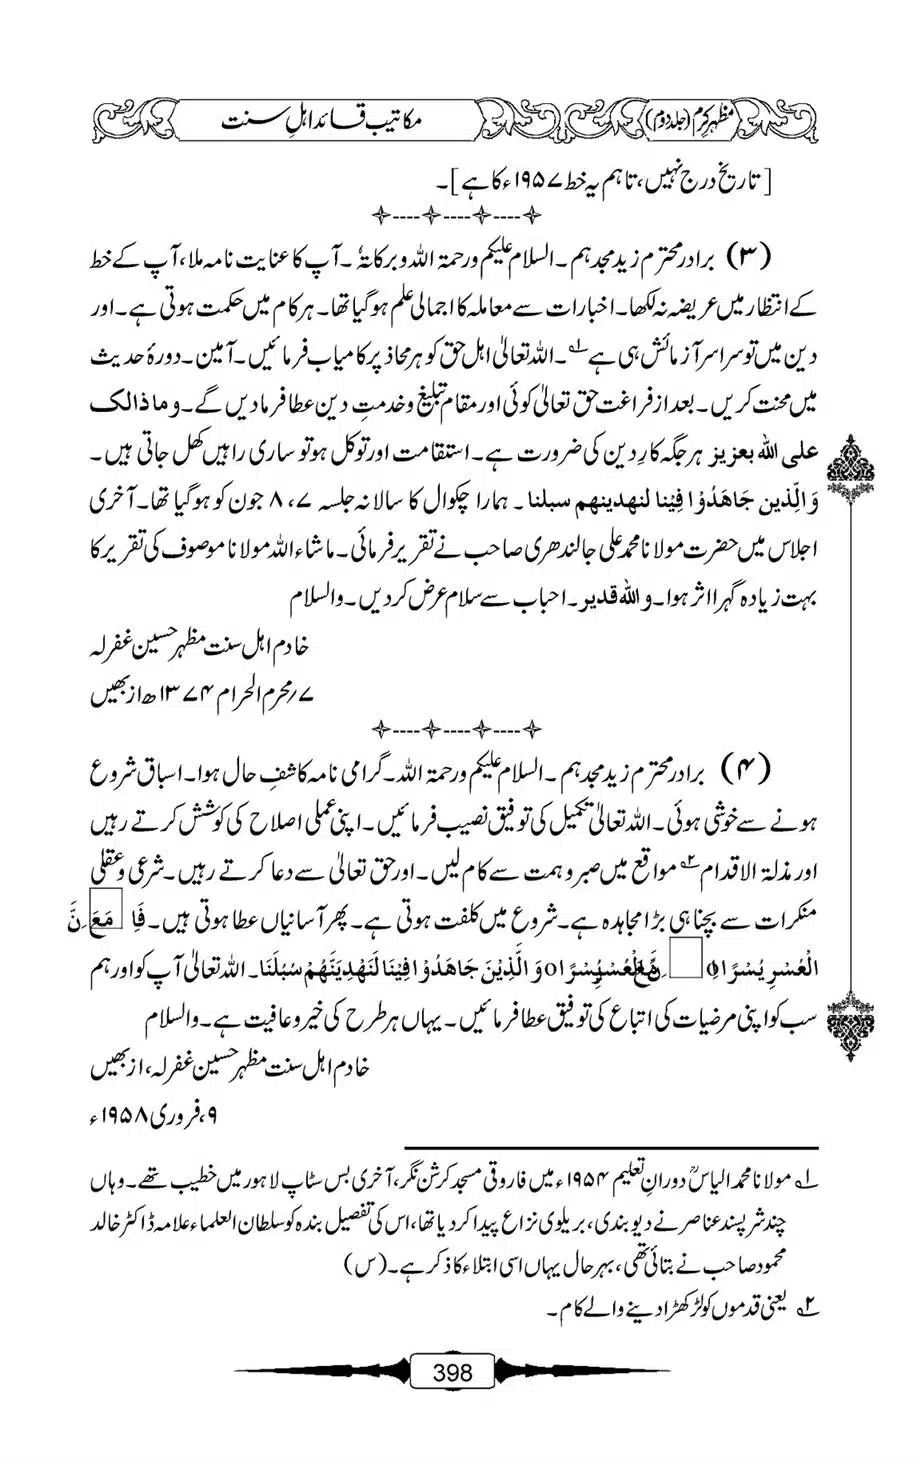 مظہرِ کرم (جلد دوم)
مکاتیب قائد اہل سنت
[تاریخ درج نہیں، تاہم یہ خط ۱۹۵۷ء کا ہے]۔
(۳) برادر محترم زید مجدہم۔ السلام علیکم ورحمۃ اللہ وبرکاتہٗ۔ آپ کا عنایت نامہ ملا، آپ کے خط
کے انتظار میں عریضہ نہ لکھا۔ اخبارات سے معاملہ کا اجمالی علم ہوگیا تھا۔ ہر کام میں حکمت ہوتی ہے۔ اور
دین میں تو سراسر آزمائش ہی ہے ؂۱۔ اللہ تعالیٰ اہل حق کو ہر محاذ پر کامیاب فرمائیں۔ آمین۔ دورۂ حدیث
میں محنت کریں۔ بعد از فراغت حق تعالیٰ کوئی اور مقام تبلیغ و خدمتِ دین عطا فرمادیں گے۔ وما ذالک
علی اللہ بعزیز ہر جگہ کارِ دین کی ضرورت ہے۔ استقامت اور توکل ہو تو ساری راہیں کھل جاتی ہیں۔
وَالَّذِین جَاھَدُوْا فِیْنا لنھدینھم سبلنا۔ ہمارا چکوال کا سالانہ جلسہ ۷، ۸ جون کو ہوگیا تھا۔ آخری
اجلاس میں حضرت مولانا محمد علی جالندھری صاحب نے تقریر فرمائی۔ ماشاء اللہ مولانا موصوف کی تقریر کا
بہت زیادہ گہرا اثر ہوا۔ واللہ قدیر۔ احباب سے سلام عرض کردیں۔ والسلام
خادم اہل سنت مظہر حسین غفرلہ
۷/محرم الحرام ۱۳۷۴ھ از بھیں
(۴) برادر محترم زید مجدہم۔ السلام علیکم ورحمۃ اللہ۔ گرامی نامہ کاشفِ حال ہوا۔ اسباق شروع
ہونے سے خوشی ہوئی۔ اللہ تعالیٰ تکمیل کی توفیق نصیب فرمائیں۔ اپنی عملی اصلاح کی کوشش کرتے رہیں
اور مذلۃ الاقدام ؂۲ مواقع میں صبر و ہمت سے کام لیں۔ اور حق تعالیٰ سے دعا کرتے رہیں۔ شرعی و عقلی
منکرات سے بچنا ہی بڑا مجاہدہ ہے۔ شروع میں کلفت ہوتی ہے۔ پھر آسانیاں عطا ہوتی ہیں۔ فَاِنَّ مَعَ
الْعُسْرِ یُسْرًا۝ اِنَّ مَعَ الْعُسْرِ یُسْرًا۝ وَالَّذِیْنَ جَاھَدُوْا فِیْنَا لَنَھْدِیَنَّھُمْ سُبُلَنَا۔ اللہ تعالیٰ آپ کو اور ہم
سب کو اپنی مرضیات کی اتباع کی توفیق عطا فرمائیں۔ یہاں ہر طرح کی خیر و عافیت ہے۔ والسلام
خادم اہل سنت مظہر حسین غفرلہ، از بھیں
۹، فروری ۱۹۵۸ء
؂۱ مولانا محمد الیاسؒ دورانِ تعلیم ۱۹۵۴ء میں فاروقی مسجد کرشن نگر، آخری بس سٹاپ لاہور میں خطیب تھے۔ وہاں
چند شرپسند عناصر نے دیوبندی، بریلوی نزاع پیدا کردیا تھا، اس کی تفصیل بندہ کو سلطان العلماء علامہ ڈاکٹر خالد
محمود صاحب نے بتائی تھی، بہرحال یہاں اسی ابتلاء کا ذکر ہے۔ (س)
؂۲ یعنی قدموں کو لڑکھڑا دینے والے کام۔
398